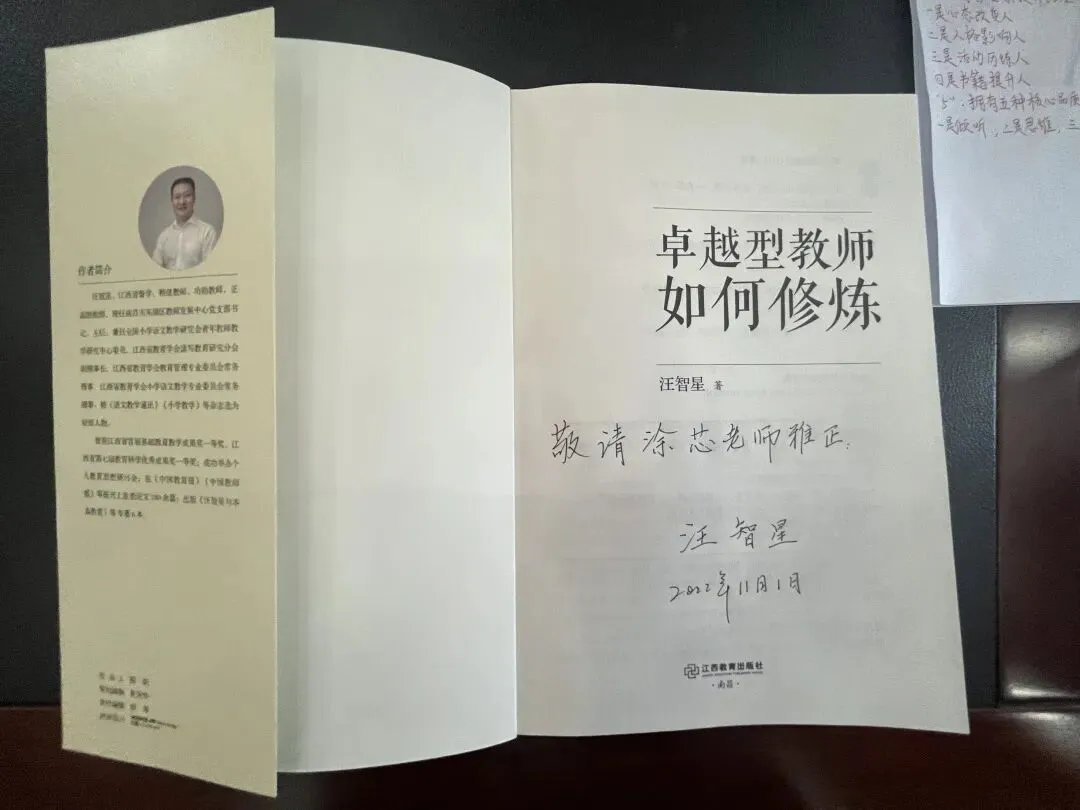 作者简介
汪智星,江西省督学、特级教师、功勋教师、正
高级教师,现任南昌市东湖区教师发展中心党支部书
记、主任,兼任全国小学语文教学研究会青年教师教
学研究中心委员、江西省教育学会读写教育研究分会
副理事长、江西省教育学会教育管理专业委员会常务
理事、江西省教育学会小学语文教学专业委员会常务
理事,被《语文教学通讯》《小学教学》等杂志选为
封面人物。
曾获江西省首届基础教育教学成果奖一等奖、江
西省第七届教育科学优秀成果奖一等奖;成功举办个
人教育思想研讨会;在《中国教育报》《中国教师
报》等报刊上发表论文
教育》等专著6本
卓越型教师
如何修炼
汪智星 著
敬请涂芯老师雅正.
汪智星
2022年11月1日
江西教育出版社
·南昌·
一是心态改变人
二是人格影响人
三是活动历练人
四是书籍提升人
"5".拥有五种核心品质
一是倾听,二是思维,三